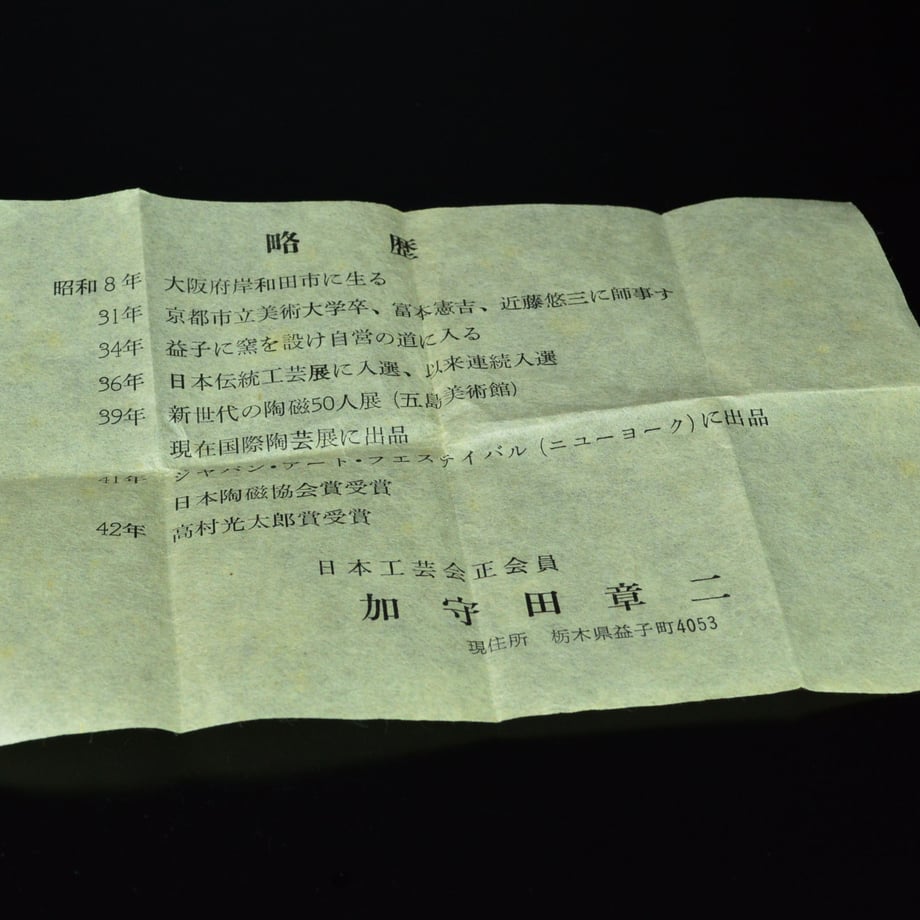 略歴
昭和8年 大阪府岸和田市に生る
31年 京都市立美術大学卒、富本憲吉、近藤悠三に師事す
34年 益子に窯を設け自営の道に入る
36年 日本伝統工芸展に入選、以来連続入選
39年 新世代の陶磁50人展(五島美術館)
現在国際陶芸展に出品
41年 ジャパン・アート・フェスティバル(ニューヨーク)に出品
日本陶磁協会賞受賞
42年 高村光太郎賞受賞
日本工芸会正会員
加守田章二
現住所 栃木県益子町4053